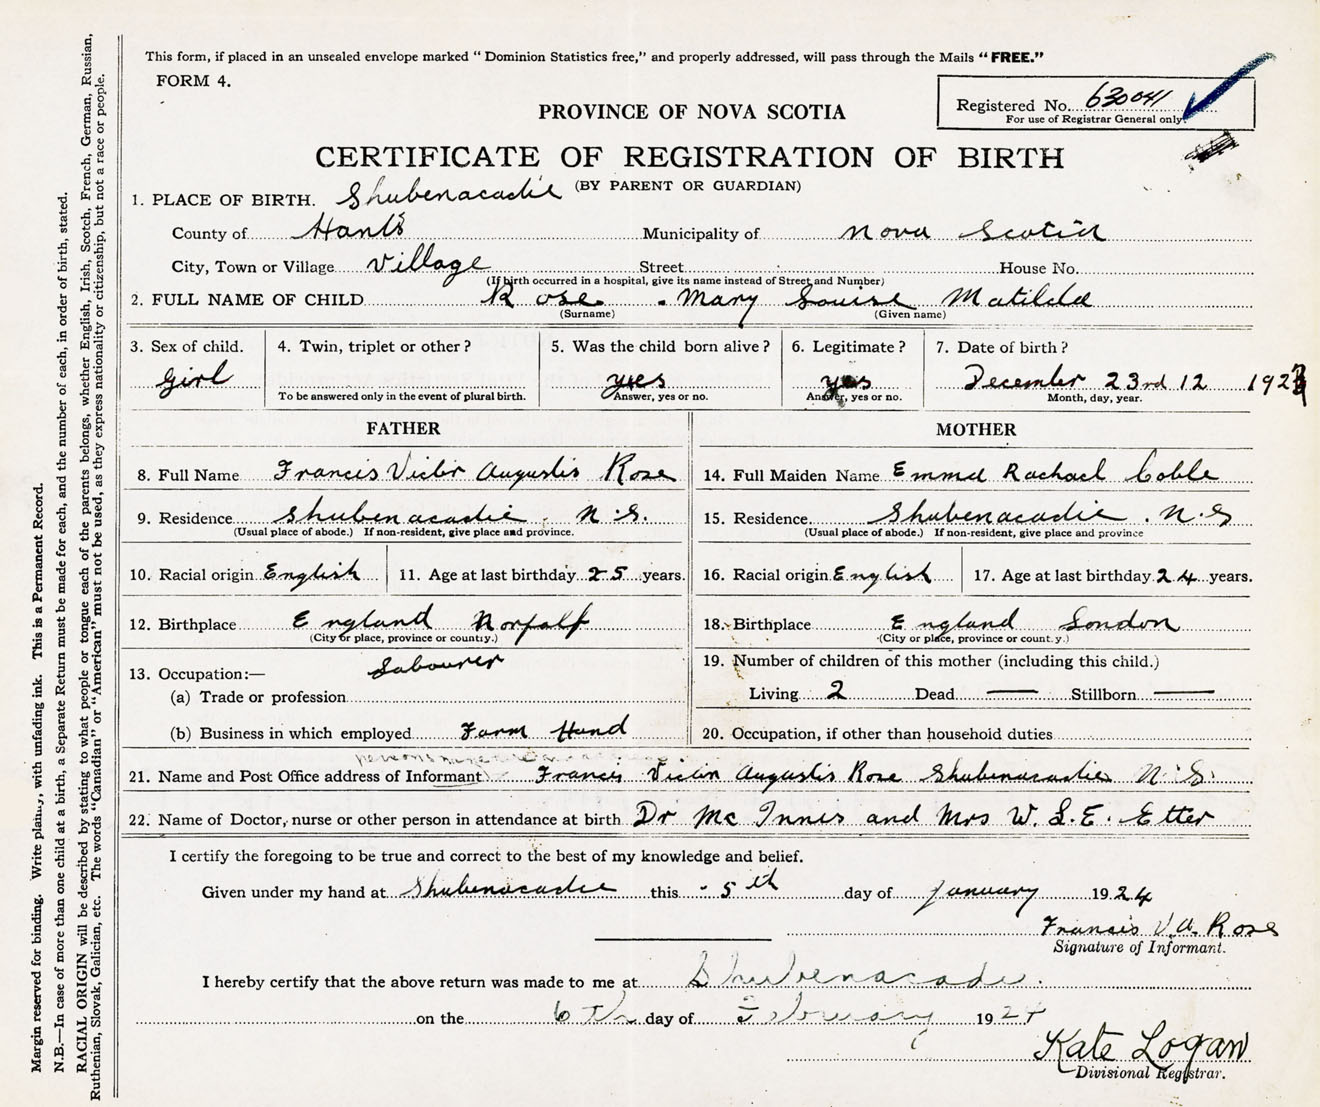 This form, if placed in an unsealed envelope marked “Dominion Statistics free,” and properly addressed, will pass through the Mails “FREE.”
FORM 4.
Registered No. 630041
For use of Registrar General only
PROVINCE OF NOVA SCOTIA
CERTIFICATE OF REGISTRATION OF BIRTH
(BY PARENT OR GUARDIAN)
1. PLACE OF BIRTH. Shubenacadie
County of Hants Municipality of Nova Scotia
City, Town or Village Village Street House No.
(If birth occurred in a hospital, give its name instead of Street and Number)
2. FULL NAME OF CHILD Rose . Mary Louise Matilda
(Surname) (Given name)
3. Sex of child. 4. Twin, triplet or other? 5. Was the child born alive? 6. Legitimate? 7. Date of birth?
Girl yes yes December 23rd 12 1923
To be answered only in the event of plural birth. Answer, yes or no. Answer, yes or no. Month, day, year.
FATHER MOTHER
8. Full Name Francis Victor Augustis Rose 14. Full Maiden Name Emma Rachael Coble
9. Residence Shubenacadie . N.S. 15. Residence Shubenacadie . N.S
(Usual place of abode.) If non-resident, give place and province. (Usual place of abode.) If non-resident, give place and province
10. Racial origin English 11. Age at last birthday 25 years. 16. Racial origin English 17. Age at last birthday 24 years.
12. Birthplace England Norfolf 18. Birthplace England London
(City or place, province or country.) (City or place, province or country.)
13. Occupation:— Labourer 19. Number of children of this mother (including this child.)
(a) Trade or profession Living 2 Dead — Stillborn —
(b) Business in which employed Farm Hand 20. Occupation, if other than household duties
21. Name and Post Office address of Informant Francis Victor Augustis Rose Shubenacadie N.S.
22. Name of Doctor, nurse or other person in attendance at birth Dr Mc Innis and Mrs W. L. E. Etter
I certify the foregoing to be true and correct to the best of my knowledge and belief.
Given under my hand at Shubenacadie this 5th day of January 1924
Francis V.A. Rose
Signature of Informant.
I hereby certify that the above return was made to me at Shubenacadie.
on the 6th day of February 1924
Kate Logan
Divisional Registrar.
Margin reserved for binding. Write plainly, with unfading ink. This is a Permanent Record.
N.B.—In case of more than one child at a birth, a Separate Return must be made for each, and the number of each, in order of birth, stated.
RACIAL ORIGIN will be described by stating to what people or tongue each of the parents belongs, whether English, Irish, Scotch, French, German, Russian,
Ruthenian, Slovak, Galician, etc. The words “Canadian” or “American” must not be used, as they express nationality or citizenship, but not a race or people.